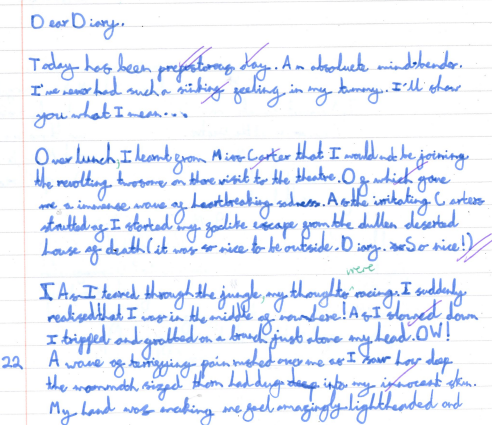 Dear Diary..
Today has been preposterous day. An absolute mind-bender.
I've never had such a sinking feeling in my tummy. I'll show
you what I mean...
Over lunch, I learnt from Miss Carter that I would not be joining
the revolting twosome on there visit to the theatre. Of which gave
me a immense wave of heartbreaking sadness. As the irritating Carters
strutted of I started my escape from the dullen deserted
house of death (it was so nice to be outside. Diary. So nice!)
were
As I teared through the jungle, my thoughts racing. I suddenly
realised that I was in the middle of nowhere! As I slowed down
I tripped and grabbed on a branch just above my head. OW!
22 A wave of terrifying pain rushed over me as I saw how deep
the mammoth sized thorn had dug into my innocent skin.
My hand was making me feel amazingly lightheaded and